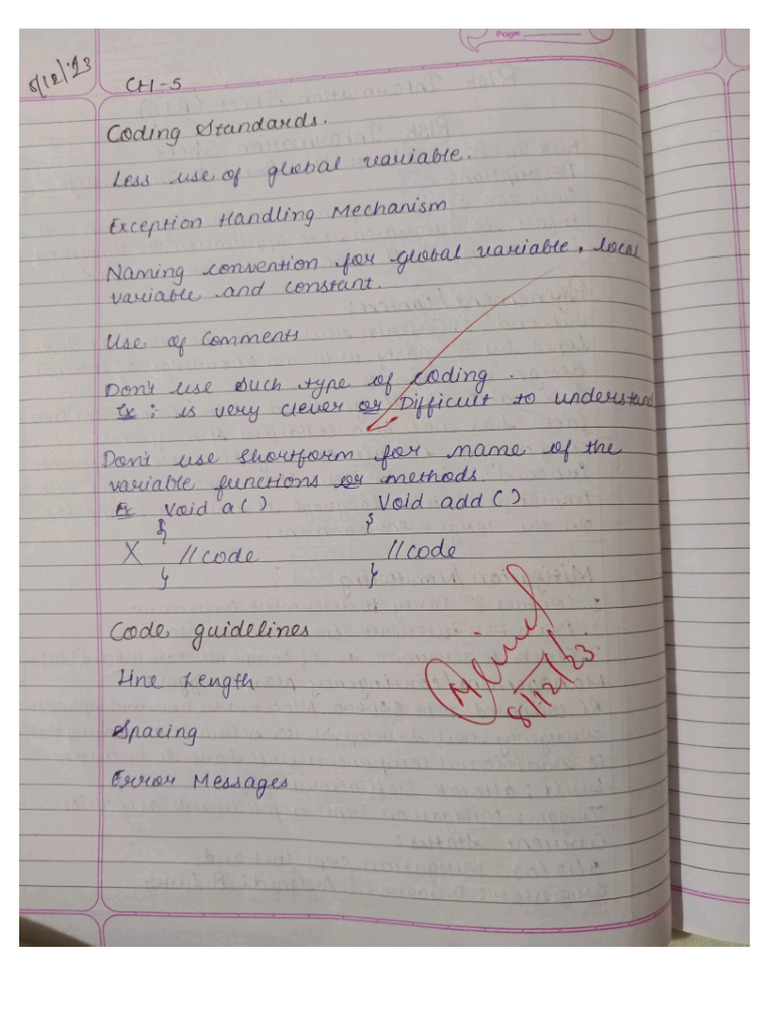 Page
8/12/23
CH-5
Coding Standards.
Less use of global variable.
Exception Handling Mechanism
Naming convention for global variable, local
variable and constant.
Use of Comments
Don't use such type of coding.
Ex: is very clever or Difficult to understand
Don't use shortform for name of the
variable functions or methods.
Ex void a() void add()
{ {
X //code //code
} }
Code guidelines
Line Length
Spacing
Error Messages
8/12/23